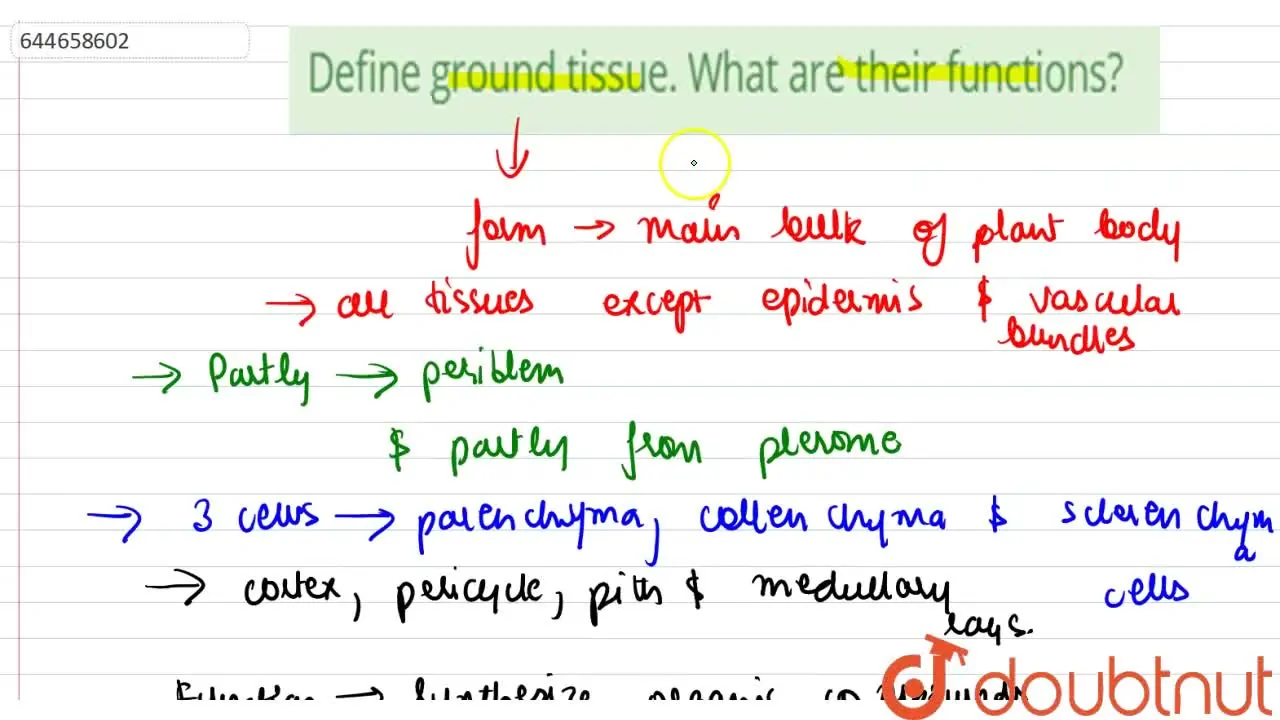 644658602
Define ground tissue. What are their functions?
↓
form → main bulk of plant body
→ all tissues except epidermis & vascular
bundles
→ Partly → periblem
& partly from plerome
→ 3 cells → parenchyma, collenchyma & sclerenchym
a
cells
→ cortex, pericycle, pith & medullary
rays.
Function → synthesize organic compounds
doubtnut